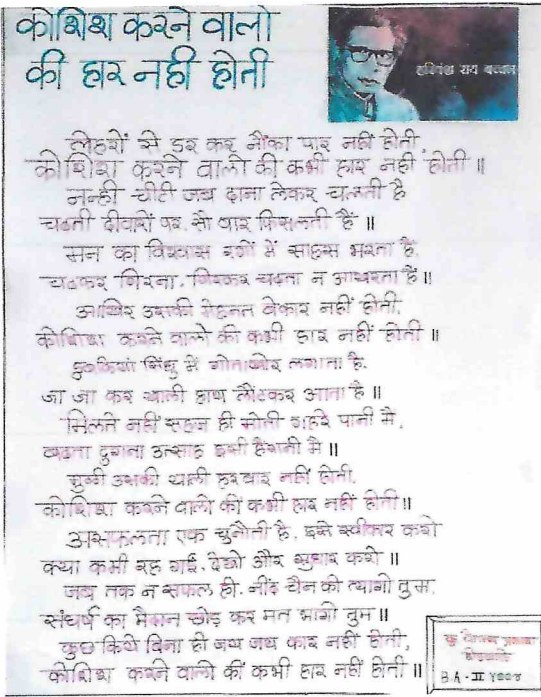 कोशिश करने वालो
की हार नही होती
हरिवंश राय बच्चन
लेहरों से डर कर नौका पार नहीं होती,
कोशिश करने वालो की कभी हार नही होती ॥
नन्ही चीटी जब दाना लेकर चलती है
चढती दीवारों पर, सौ बार फिसलती हैं ॥
मन का विश्वास रगों में साहस भरता है,
चढकर गिरना, गिरकर चढ़ना न अखरता हैं ॥
आखिर उसकी मेहनत बेकार नहीं होती,
कोशिश करने वालो की कभी हार नहीं होती ॥
डुबकियां सिंधु में गोताखोर लगाता है,
जा जा कर खाली हाथ लौटकर आता है ॥
मिलते नहीं सहज ही मोती गहरे पानी मै,
बढ़ता दुगना उत्साह इसी हैरानी मै ॥
मुठ्ठी उसकी खाली हरबार नहीं होती,
कोशिश करने वालो की कभी हार नहीं होती ॥
असफलता एक चुनौती है, इसे स्वीकार करो
क्या कमी रह गई, देखो और सुधार करो ॥
जब तक न सफल हो, नींद चैन को त्यागो तुम,
संघर्ष का मैदान छोड़ कर मत भागो तुम ॥
कुछ किये बिना ही जय जय कार नहीं होती,
कोशिश करने वालो की कभी हार नहीं होती ॥
कु
B.A - II